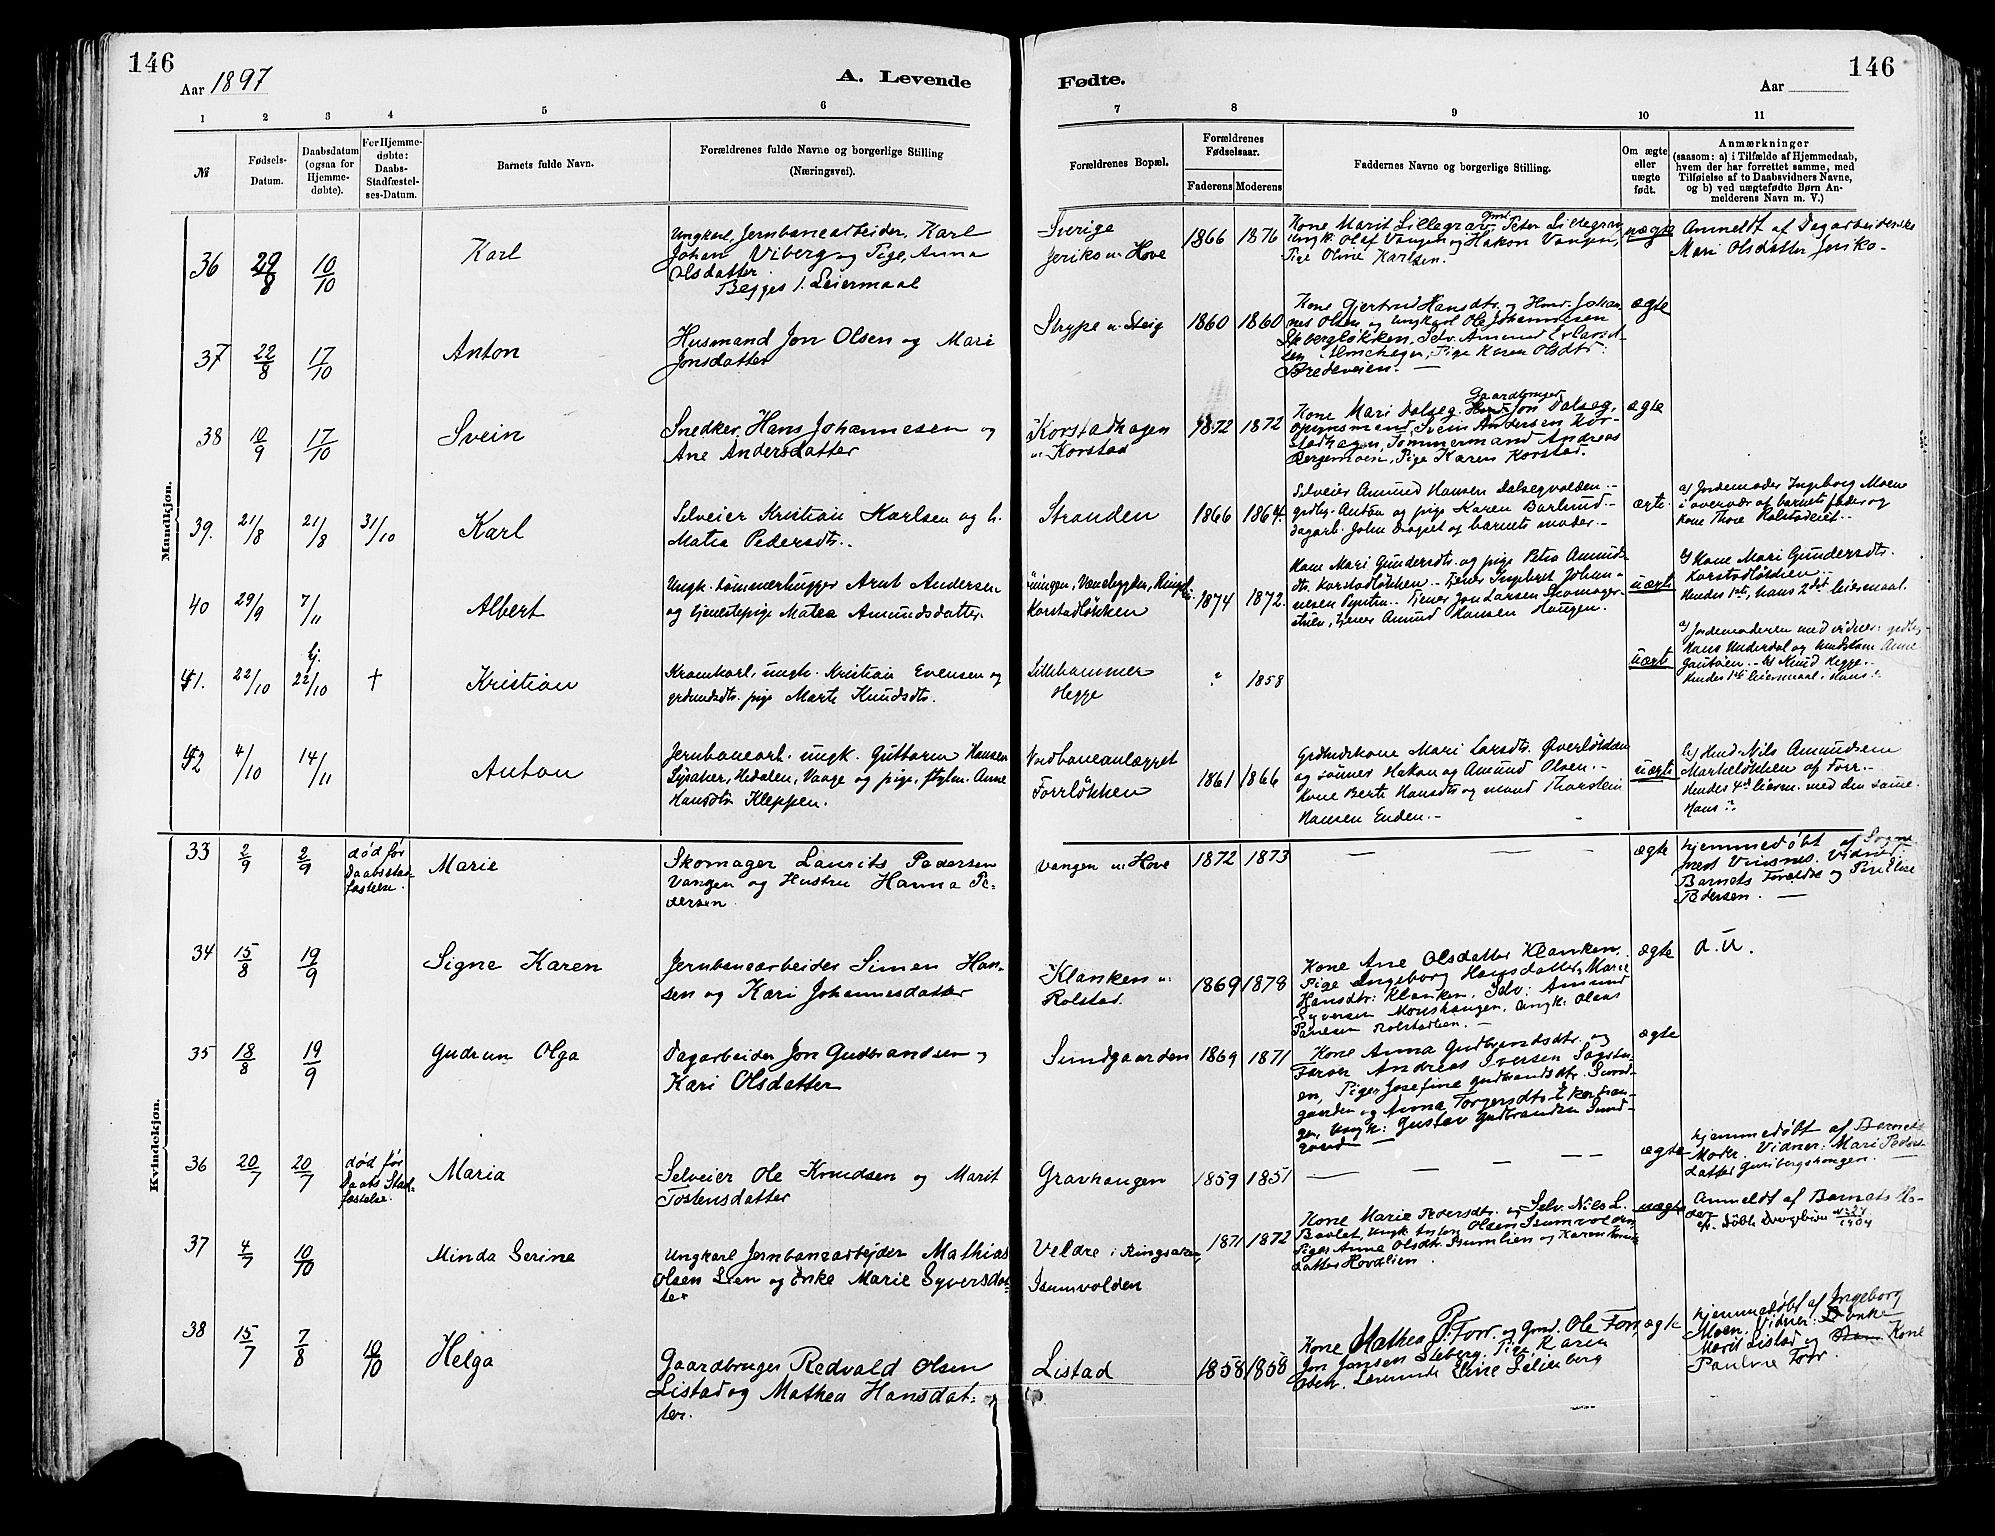 146
Aar 1897
A. Levende
Fødte.
146
Aar
1 2 3 4 5 6 7 8 9 10 11
№
Fødsels-
Datum.
Daabsdatum
(ogsaa for
Hjemme-
døbte).
For Hjemme-
døbte:
Daabs-
Stadfæstel-
ses-Datum.
Barnets fulde Navn.
Forældrenes fulde Navne og borgerlige Stilling
(Næringsvei).
Forældrenes Bopæl.
Forældrenes
Fødselsaar.
Faderens Moderens
Faddernes Navne og borgerlige Stilling.
Om ægte
eller
uægte
født.
Anmærkninger
(saasom: a) i Tilfælde af Hjemmedaab,
hvem der har forrettet samme, med
Tilføielse af to Daabsvidners Navne,
og b) ved uægtefødte Børn An-
melderens Navn m. V.)
Mandkjøn.
36 29/8 10/10 Karl
Ungkarl, Jernbanearbeider, Karl
Johan Viberg og Pige, Anna
Olsdatter.
Begges 1. Leiermaal
Sverige
Jeriko u. Hove
1866 1876
Kone Marit Lillegrav, Gmd. Peter Lillegrav,
Ungk. Olaf Vangen og Hakon Vangen,
Pige Oline Karlsen.
uægte
Anmeldt af Dagarbeiderske
Mari Olsdatter Jeriko-
37 22/8 17/10 Anton
Husmand Jon Olsen og Mari
Jonsdatter
Strype u. Steig
1860 1860
Kone Gjertrud Hansdtr. og Hmd. Johan-
nes Olsen og Ungkarl Ole Johannesen
Stebergløkken, Selv. Amund Evlard-
sen, Pige Karen Olsdtr.
Bredeveien. —
ægte
38 10/9 17/10 Svein
Snedker, Hans Johannesen og
Ane Andersdatter
Korstadhagen
u. Korstad
1872 1872
Gaardbruger
Kone Mari Dalseg. Jon Dalseg,
Opsynsmand, Svein Andersen Kor-
stadhagen, Tømmermand Andreas
Bergemoen, Pige Karen Korstad.
ægte
39. 21/8 21/8 31/10 Karl
Selveier Kristian Karlsen og h.
Matea Pedersdtr.
Stranden
1866 1864.
Selveier Amund Hansen Dalsegvolden. -
grdbr. Anton og pige Karen Barlund. -
dagarb. John Draget og barnets moder. -
ægte.
a) Jordemoder Ingeborg Moene
i overvær af barnets fader og
kone Thore Rolstadeiet. -
40 29/9 7/11 Albert
Ungk. tømmerhugger Arnt Andersen
og tjenestepige Matea Amundsdatter.
Korstadløkken
1874 1872.
Kone Mari Gundersdtr. og pige Petra Amunds-
dtr. Korstadløkken. - tjener Ingebret Johan-
nesen. tjener Jon Larsen Skomager-
stuen, tjener Amund Hansen Haugen.
uægte
b) Kone Mari Gundersdtr.
Korstadløkken. -
Hendes 1ste, hans 2det leiermaal.
41. 22/10 hj. 22/10 † Kristian
Kramkarl, ungk. Kristian Evensen og
grdmdsdtr. pige Marte Knudsdtr.
Lillehammer
Hegge
? 1858
uægte
a) Jordemoderen med vidner: grdbr.
Hans Underdal og Anne
b) Knud Hegge. -
Hendes 1ste leiermaal. Hans ?
42 4/10 14/11 Anton
Jernbanearb. ungk. Guttorm Hansen
Lysaker, Hedalen, Vaage og pige, Anne
Hansdtr. Kleppen.
Ved baneanlægget
Forrløkken
1861 1866
Grdmdskone Mari Larsdtr. Øverlødden
og sønner Hakon og Amund Olsen. -
Kone Berte Hansdtr. og mand Thorstein
Hansen Enden. -
uægte
b) Hmd. Nils Amundsen
Markeløkken af Forr. -
Hendes 4de leierm. med den samme.
Hans ?
Kvindekjøn.
33 2/9 2/9
død før
Daabsstad-
fæstelse.
Marie
Skomager Laurits Pedersen
Vangen og Hustru Hanna Pe-
dersen
Vangen u. Hove
1872 1873
— — —
ægte
hjemmedøbt af Sogne-
prest Vinsnes. Vidner:
Barnets Forældre og
Pedersen. —
34 15/8 19/9 Signe Karen
Jernbanearbeider Simen Han-
sen og Kari Johannesdatter
Klanken u.
Rolstad.
1869 1878
Kone Ane Olsdatter Klanken.
Pige Ingeborg Hansdatter, Marie
Hansdtr. Klanken, Selv. Amund
Syversen Moushaugen, Ungk. Olaus
Paulsen Rolstadlien. —
ægte
a. u.
35 18/8 19/9 Gudrun Olga
Dagarbeider Jon Gudbrandsen og
Kari Olsdatter
Sundgaarden
1869 1871
Kone Anna Gudbrandsdtr. og
Farver Andreas Iversen Sagstu-
en, Pige Josefine Gudbrandsdtr. Sund-
gaarden og Anna Torgersdtr. Ekerhau-
gen, Ungk: Gustav Gudbrandsen Sund-
gaard —
ægte
36 20/7 20/7
død før
Daabs Stad-
fæstelse.
Maria
Selveier Ole Knudsen og Marit
Tostensdatter
Gravhaugen
1859 1851
— — — —
ægte
hjemmedøbt af Barnets
Moder. Vidner: Mari Peders-
datter
37 4/7 10/10 Minda Serine
Ungkarl Jernbanearbejder Mathias
Olsen Lien og Enke Marie Syversdat-
ter
Veldre i Ringsaker,
Isumvolden
1871 1872
Kone Marie Pedersdtr. og Selv. Nils L.
Baalet, Ungk. Olsen Isumvolden,
Pige Anne Olsdtr. Isumlien og Karen
datter Hovdlien.
uægte
Anmeldt af Barnets Mo-
der
1904
38 15/7 7/8 10/10 Helga
Gaardbruger Redvald Olsen
Listad og Mathea Hansdat-
ter.
Listad
1858 1858
Kone Mathea P. Forr. og Gmd. Ole Forr,
Jon Jansen Steberg. Pige Karen
Olsen. Lærerinde Line Seljeberg
ægte
hjemmedøbt af Ingeborg
Moen. Vidner: Enke
Marit Listad og Kone
Pauline Forr.